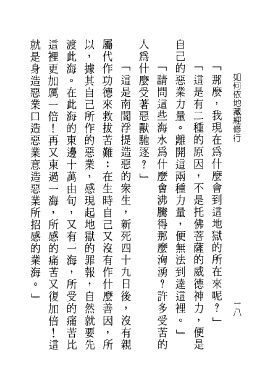 如何依地藏經修行
一八
「那麼，我現在爲什麼會到這地獄的所在來呢？」
「這是有二種的原因，不是托佛菩薩的威德神力，便是
自己的惡業力量。離開這兩種力量，便無法到達這裡。」
「請問這些海水爲什麼會沸騰得那麼洶湧？許多受苦的
人爲什麼受著惡獸馳逐？」
「這是南閻浮提造惡的衆生，新死四十九日後，沒有親
屬代作功德來救拔苦難：在生時自己又沒有作什麼善因，所
以，據其自己所作的惡業，感現起地獄的罪報，自然就要先
渡此海。在此海的東邊十萬由旬，又有一海，所受的痛苦比
這裡更加厲一倍！再又東過一海，所感的痛苦又復加倍！這
就是身造惡業口造惡業意造惡業所招感的業海。」